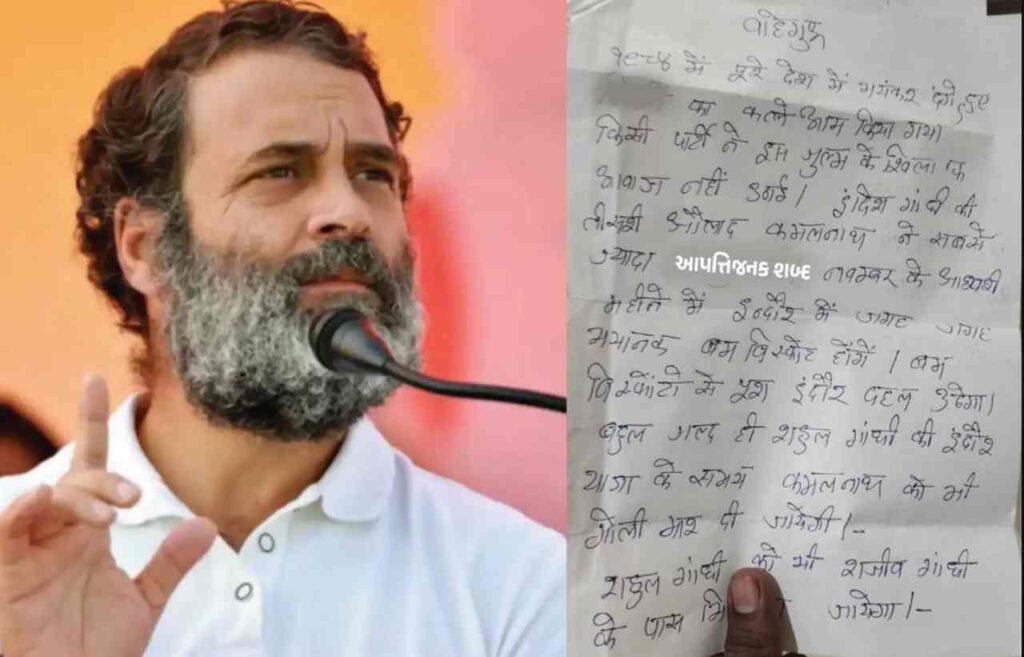 वाहेगुरू
१९८४ में पूरे देश में भयंकर दंगे हुए
का कत्ले आम किया गया
किसी पार्टी ने इस जुल्म के खिलाफ
आवाज नहीं उठाई। इंदिरा गांधी की
तीसरी औलाद कमलनाथ ने सबसे
ज्यादा આપત્તિજનક શબ્દ नवम्बर के आखरी
महीने में इन्दौर में जगह जगह
भयानक बम विस्फोट होंगें। बम
विस्फोटो से पूरा इंदौर दहल उठेगा।
बहुत जल्द ही राहुल गांधी की इंदौर
यात्रा के समय कमलनाथ को भी
गोली मार दी जायेगी।-
राहुल गांधी को भी राजीव गांधी
के पास जायेगा।-